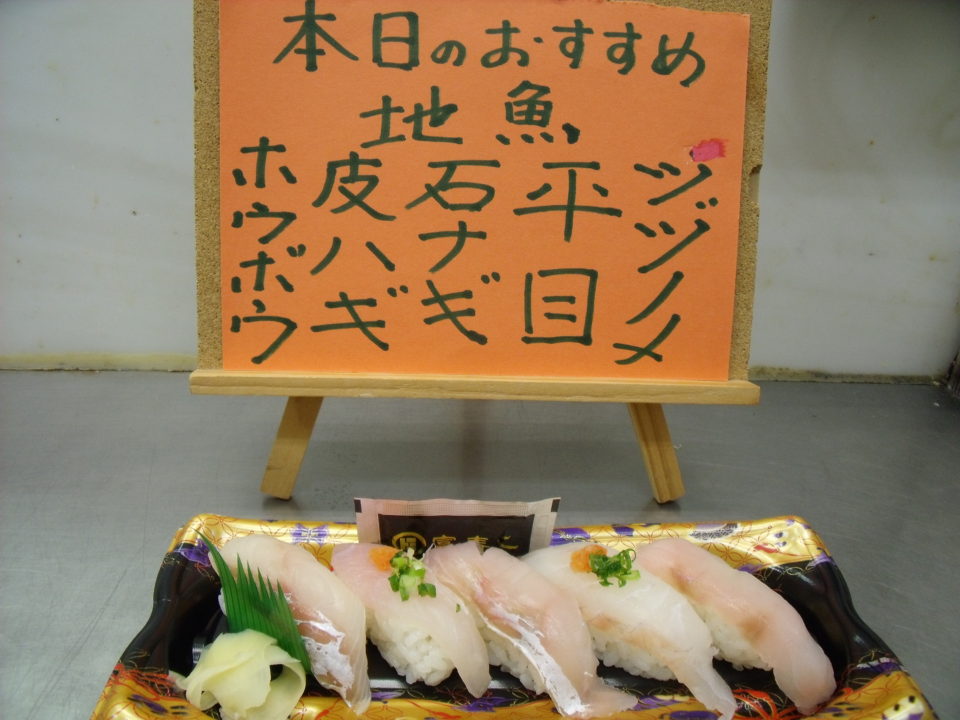 本日のおすすめ
地魚
ツヅノメ
平目
石ナギ
皮ハギ
ホウボウ